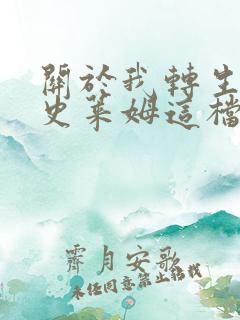 關於我轉生
史萊姆這檔
霽月安歌
未經同意禁止轉載